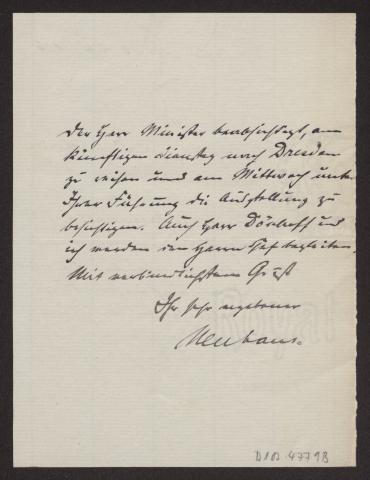 Der Herr Minister beabsichtigt, am
künftigen Dienstag nach Dresden
zu reisen und am Mittwoch unter
Ihrer Führung die Ausstellung zu
besichtigen. Auch Herr Dönhoff und
ich werden den Herrn Chef begleiten.
Mit verbindlichstem Gruß
Ihr sehr ergebener
Neuhaus.